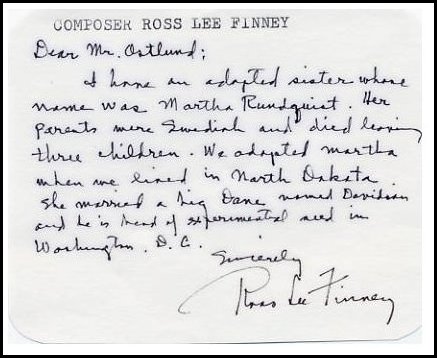 COMPOSER ROSS LEE FINNEY
Dear Mr. Ostlund;
I have an adopted sister whose
name was Martha Rundquist. Her
parents were Swedish and died leaving
three children. We adopted martha
when we lived in North Dakota.
She married a big Dane named Davidson
and he is head of experimental seed in
Washington. D.C.
Sincerely
Ross Lee Finney